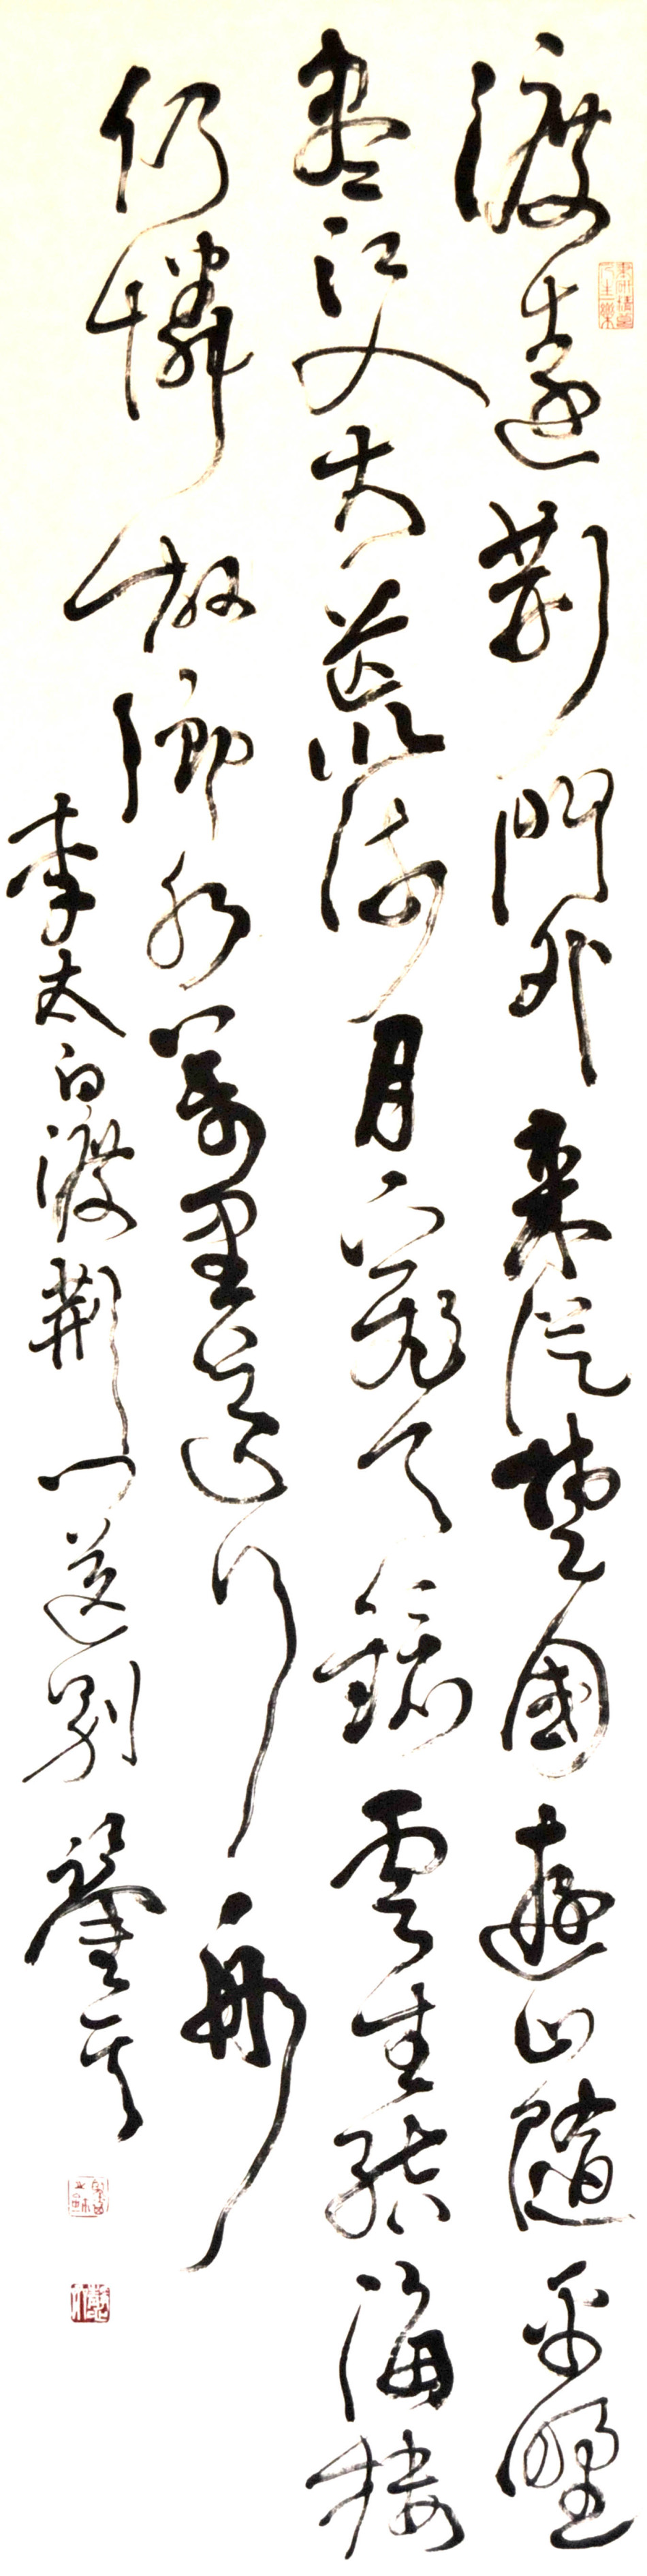 渡遠荊門外來從楚國遊山隨平野
盡江入大荒流月下飛天鏡雲生結海樓
仍憐故鄉水萬里送行舟
李太白渡荊門送別